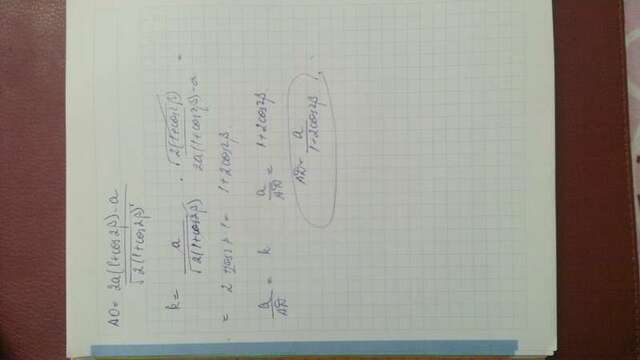 AO = \frac{2a(1+cos2β)-a}{\sqrt{2(1+cos2β)}}
k = \frac{a}{\sqrt{2(1+cos2β)}} · \frac{\sqrt{2(1+cos2β)}}{2a(1+cos2β)-a} =
= 1+2cos2β
\frac{a}{AD} = k \frac{a}{AD} = 1+2cos2β
AD = \frac{a}{1+2cos2β}